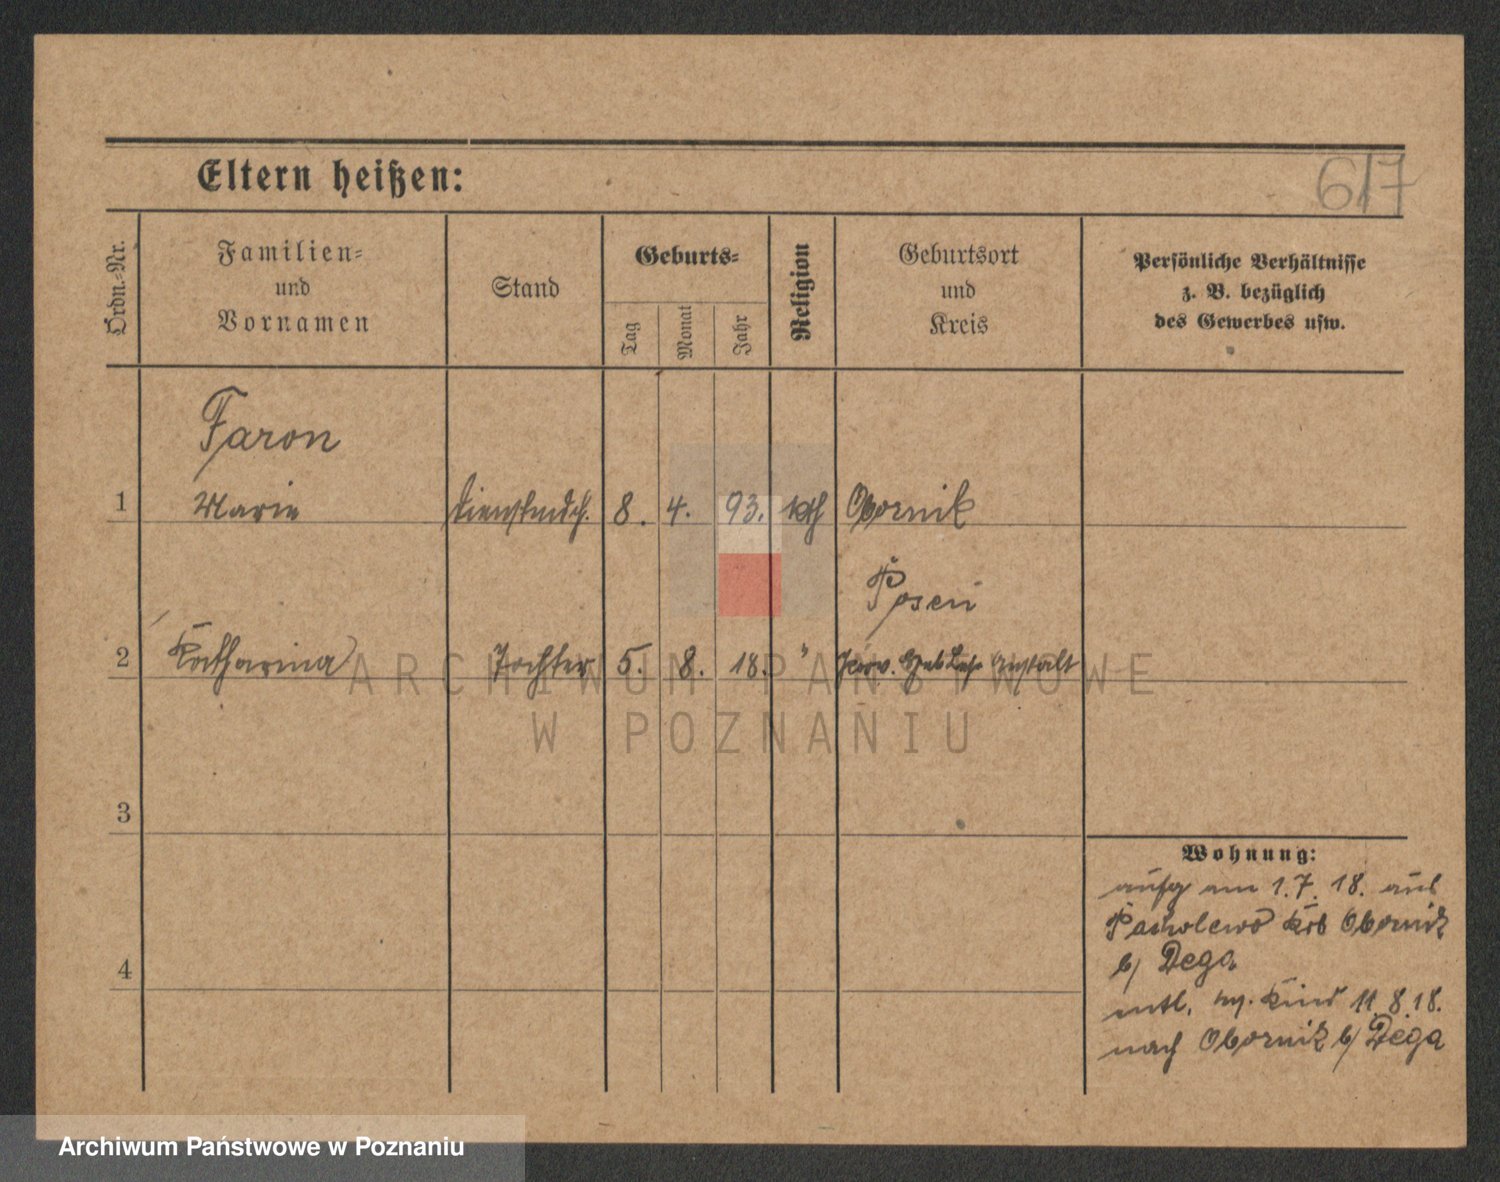 Eltern heißen:
617
Ordn.-Nr.
Familien-
und
Vornamen
Stand
Geburts-
Tag
Monat
Jahr
Religion
Geburtsort
und
Kreis
Persönliche Verhältnisse
z. B. bezüglich
des Gewerbes usw.
Faron
1 Marie Dienstmdch. 8. 4. 93. kth Obornik
Posen
2 Katharina Tochter 5. 8. 18. " Prov. Heb Lehr Anstalt
3
4
Wohnung:
aufg am 1.7.18. aus
Pacholewo Krs Obornik
b/ Dega
entl. m. Kind 11.8.18.
nach Obornik b/ Dega
ARCHIWUM PAŃSTWOWE
W POZNANIU
Archiwum Państwowe w Poznaniu